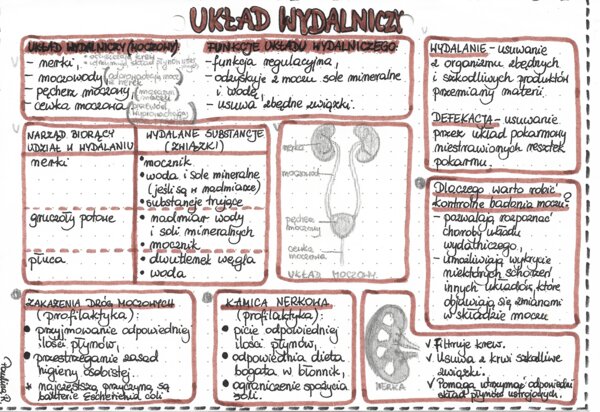 UKŁAD WYDALNICZY
UKŁAD WYDALNICZY (MOCZOWY):
- nerki,
- moczowody
- pęcherz moczowy,
- cewka moczowa
FUNKCJE UKŁADU WYDALNICZEGO:
- funkcja regulacyjna,
- odzyskuje z moczu sole mineralne
i wodę,
- usuwa zbędne związki.
WYDALANIE - usuwanie
z organizmu zbędnych
i szkodliwych produktów
przemiany materii.
DEFEKACJA - usuwanie
przez układ pokarmowy
niestrawionych resztek
pokarmu.
NARZĄD BIORĄCY
UDZIAŁ W WYDALANIU
WYDALANE SUBSTANCJE
(ZWIĄZKI)
nerki
• mocznik
• woda i sole mineralne
(jeśli są w nadmiarze)
• substancje trujące
gruczoły potowe
• nadmiar wody
i soli mineralnych
• mocznik
płuca
• dwutlenek węgla
• woda
nerka
moczowód
pęcherz
moczowy
cewka
moczowa
UKŁAD MOCZOWY
Dlaczego warto robić
kontrolne badania moczu?
- pozwalają rozpoznać
choroby układu
wydalniczego,
- umożliwiają wykrycie
niektórych schorzeń
innych układów, które
objawiają się zmianami
w składzie moczu
ZAKAŻENIA DRÓG MOCZOWYCH
(profilaktyka):
• przyjmowanie odpowiedniej
ilości płynów,
• przestrzeganie zasad
higieny osobistej.
* najczęstszą przyczyną są
bakterie Escherichia coli
KAMICA NERKOWA
(profilaktyka):
• picie odpowiedniej
ilości płynów,
• odpowiednia dieta
bogata w błonnik,
• ograniczenie spożycia
soli.
NERKA
✓ Filtruje krew.
✓ Usuwa z krwi szkodliwe
związki.
✓ Pomaga utrzymać odpowiedni
skład płynów ustrojowych.
Paulina R.